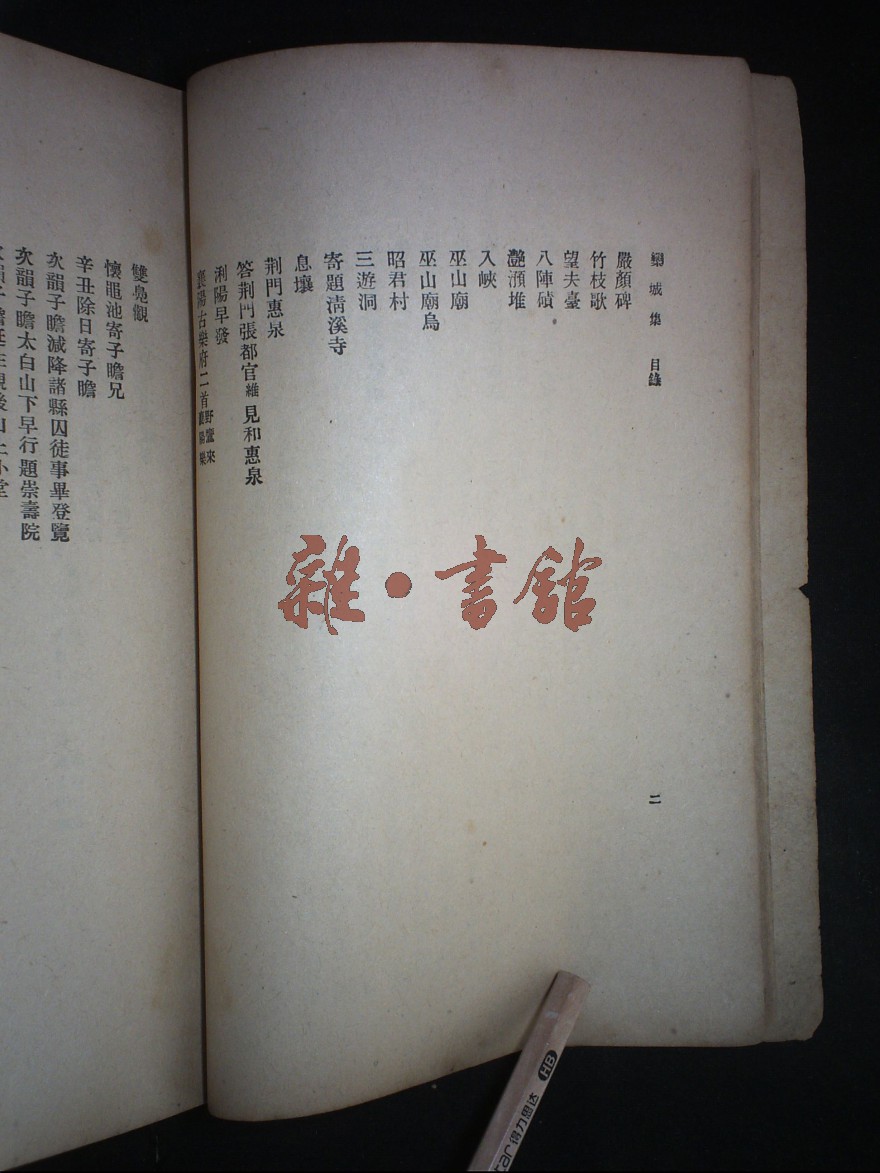 欒城集 目錄
二
嚴顏碑
竹枝歌
望夫臺
八陣磧
灩澦堆
入峽
巫山廟
巫山廟烏
昭君村
三遊洞
寄題清溪寺
息壤
荆門惠泉
答荆門張都官維見和惠泉
浰陽早發
襄陽古樂府二首野鷹來襄陽樂
雙鳧觀
懷黽池寄子瞻兄
辛丑除日寄子瞻
次韻子瞻減降諸縣囚徒事畢登覽
次韻子瞻太白山下早行題崇壽院
雜·書館
HB
得力思达